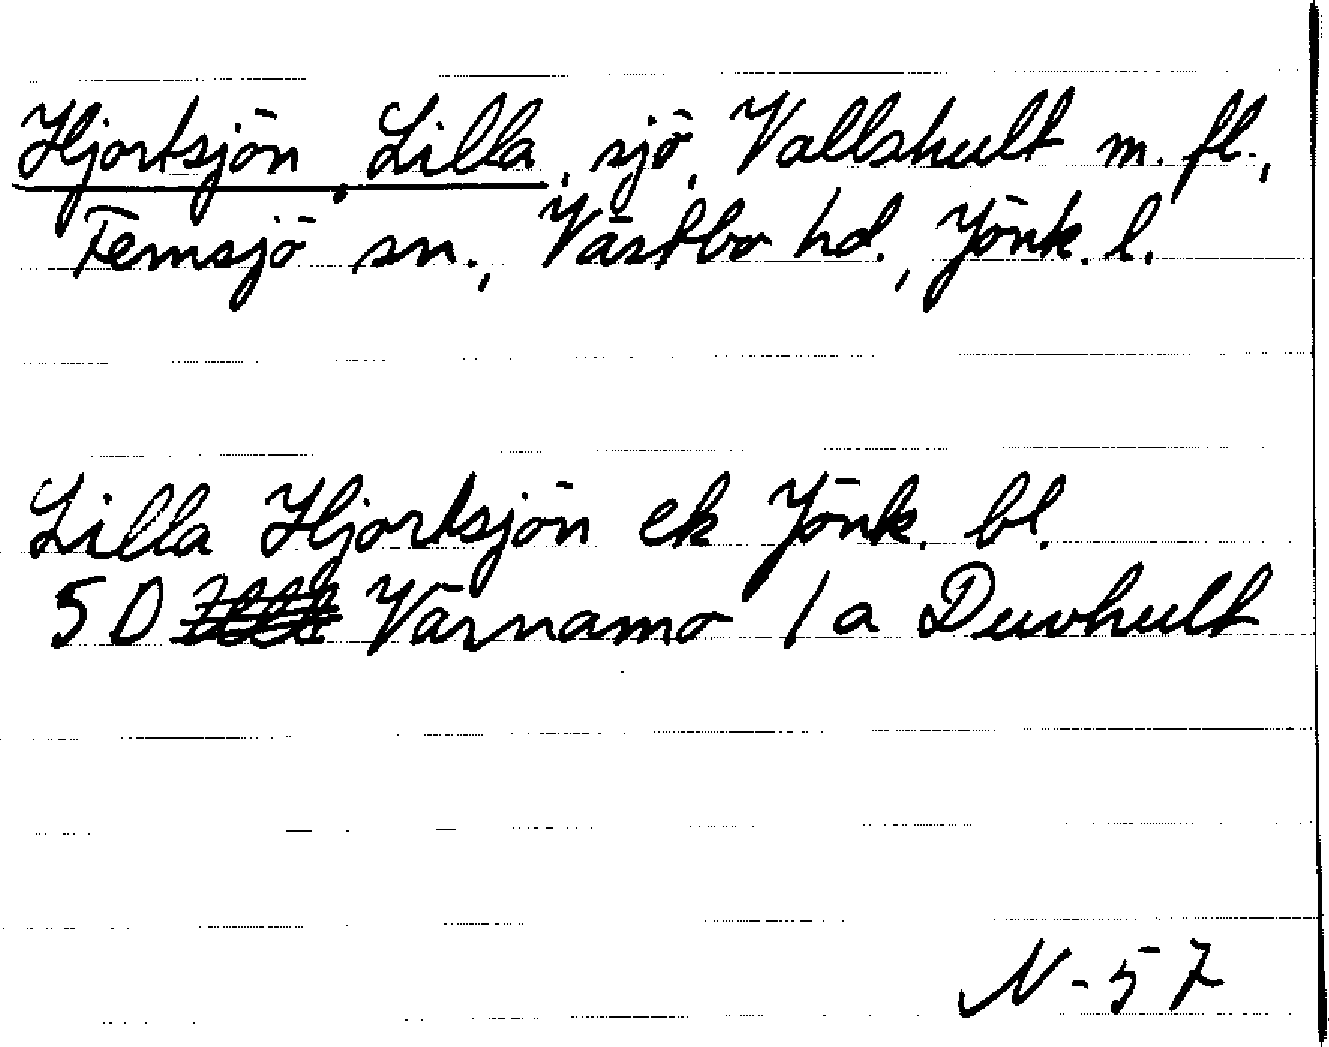 Hjortsjön, Lilla, sjö, Vallshult m. fl.,
Femsjö sn., Västbo hd., Jönk. l.
Lilla Hjortsjön ek Jönk. bl.
5 D Värnamo 1 a Duvhult
N-57